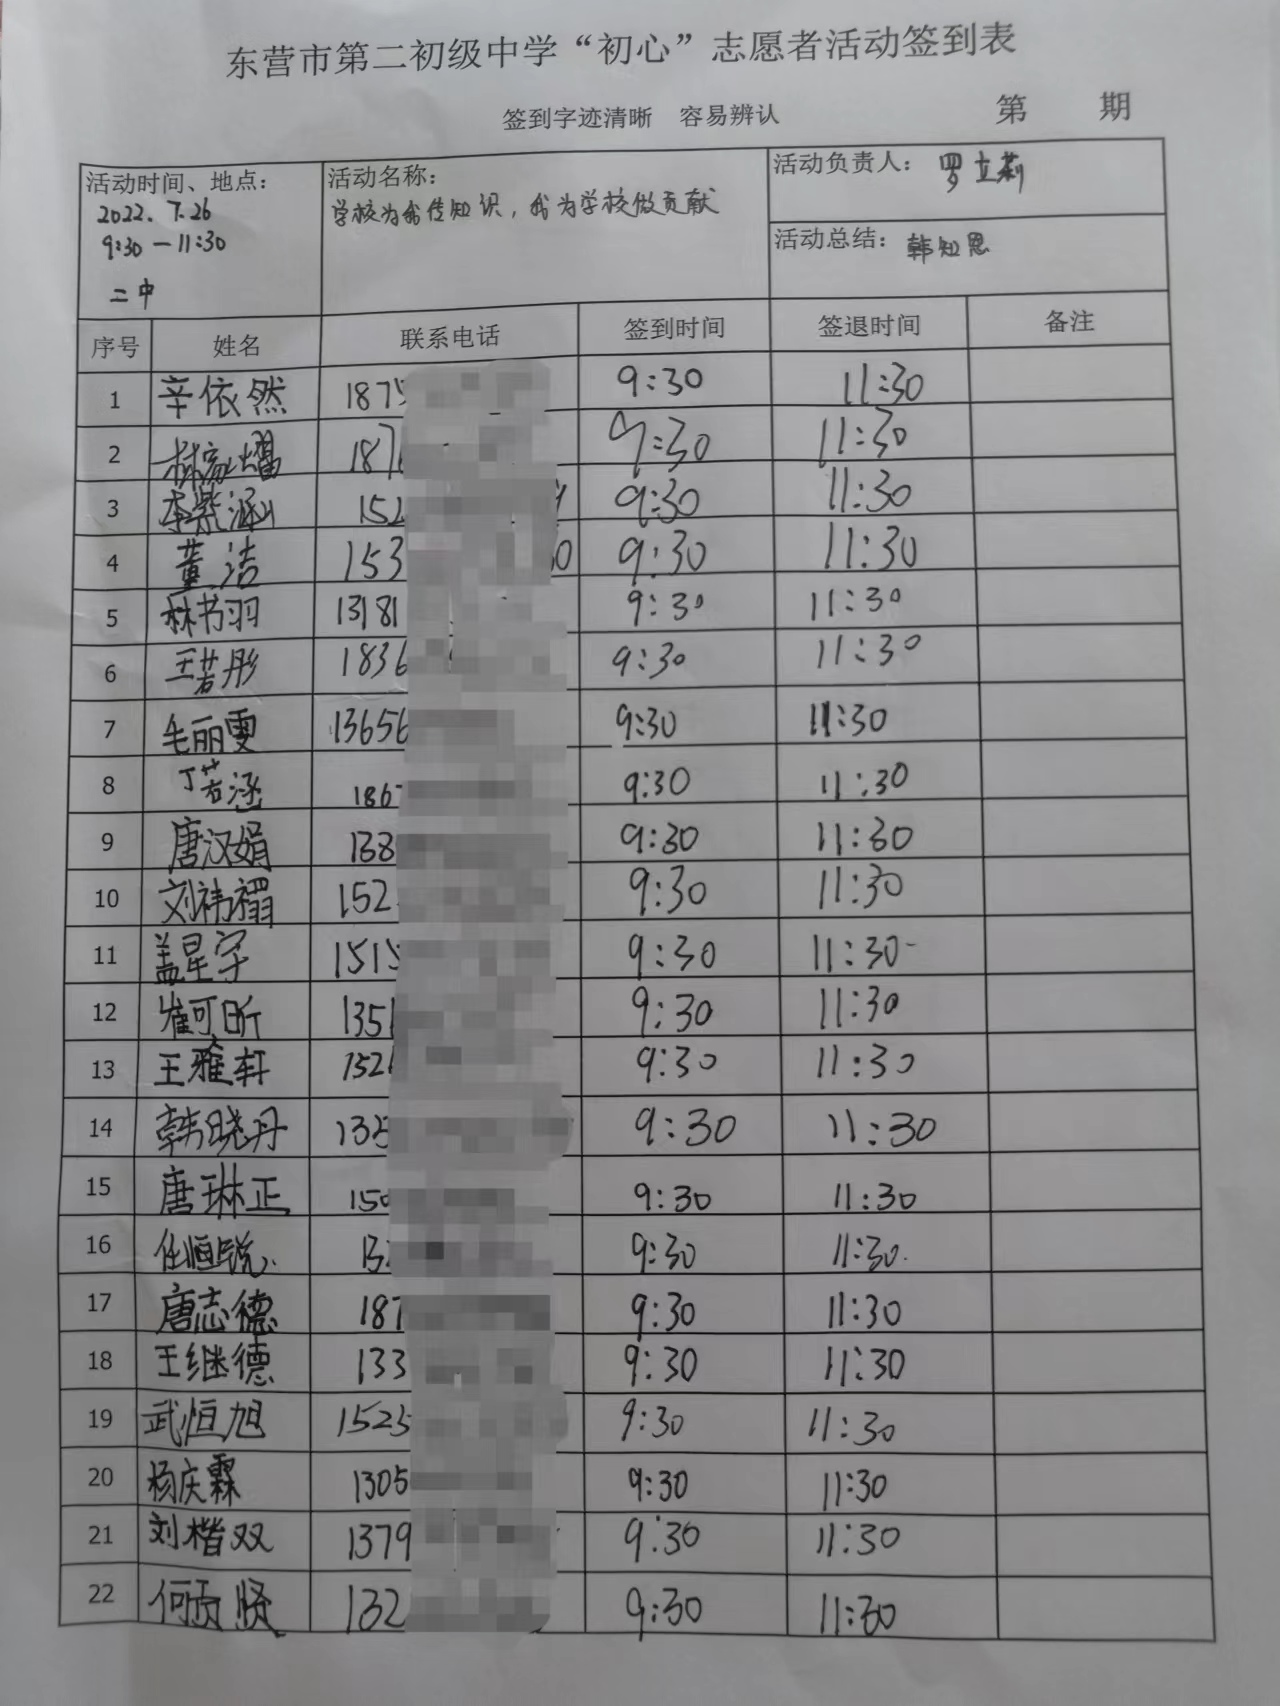 东营市第二初级中学“初心”志愿者活动签到表
签到字迹清晰 容易辨认
第 期
活动时间、地点：
2022.7.26
9:30—11:30
二中
活动名称：
学校为我传知识，我为学校做贡献
活动负责人：罗立莉
活动总结：韩知恩
序号 姓名 联系电话 签到时间 签退时间 备注
1 辛依然 1875 9:30 11:30
2 187 9:30 11:30
3 李紫涵 152 9:30 11:30
4 董洁 153 0 9:30 11:30
5 林书羽 13181 9:30 11:30
6 王若彤 1836 9:30 11:30
7 毛丽雯 13656 9:30 11:30
8 丁若涵 186 9:30 11:30
9 唐汉娟 138 9:30 11:30
10 刘祎褶 152 9:30 11:30
11 盖星宇 1515 9:30 11:30
12 崔可昕 1351 9:30 11:30
13 王雅轩 152 9:30 11:30
14 韩晓丹 135 9:30 11:30
15 唐琳正 150 9:30 11:30
16 任恒锐 13 9:30 11:30
17 唐志德 187 9:30 11:30
18 王继德 133 9:30 11:30
19 武恒旭 1525 9:30 11:30
20 杨庆霖 1305 9:30 11:30
21 刘楷双 1379 9:30 11:30
22 何贤 132 9:30 11:30